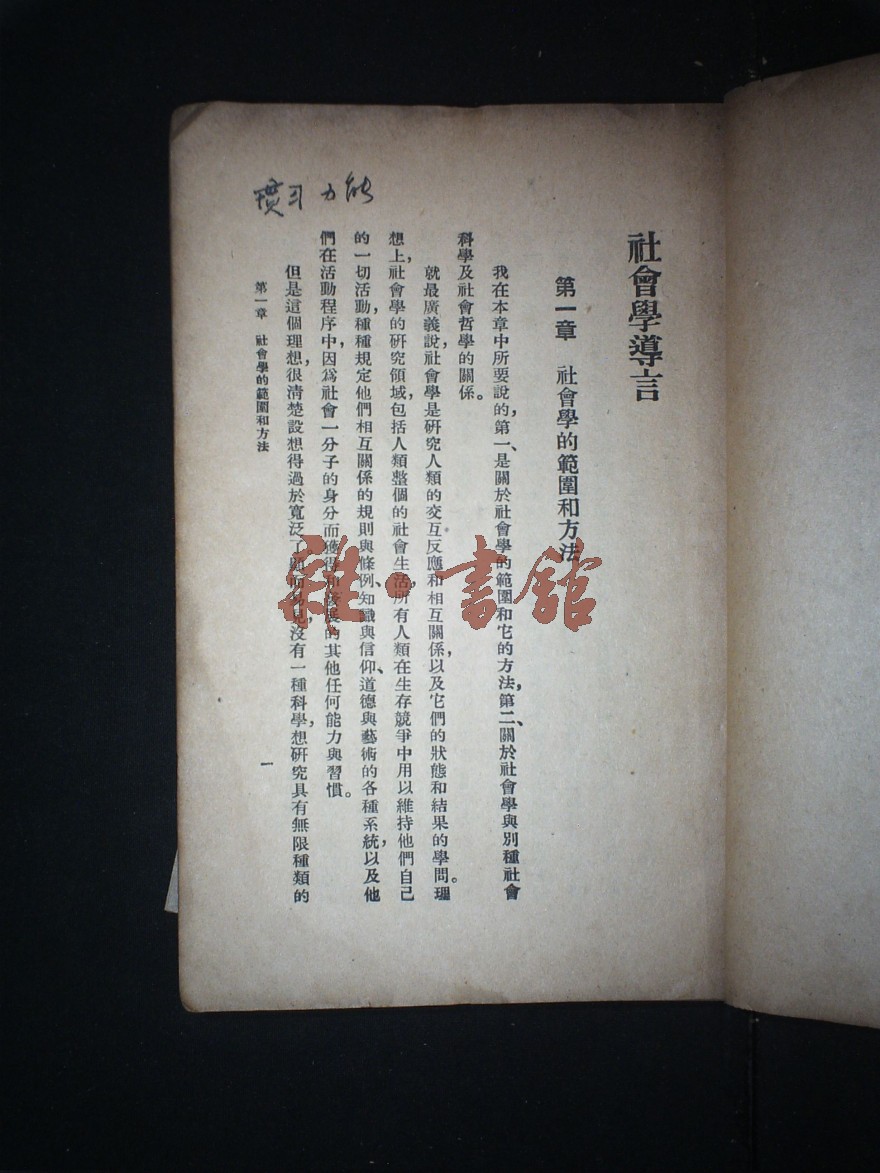 社會學導言
第一章　社會學的範圍和方法
我在本章中所要說的，第一、是關於社會學的範圍和它的方法，第二、關於社會學與別種社會
科學及社會哲學的關係。
就最廣義說，社會學是硏究人類的交互反應和相互關係，以及它們的狀態和結果的學問。理
想上，社會學的硏究領域，包括人類整個的社會生活，所有人類在生存競爭中用以維持他們自己
的一切活動，種種規定他們相互關係的規則與條例、知識與信仰、道德與藝術的各種系統，以及他
們在活動程序中，因爲社會一分子的身分而獲得和發展的其他任何能力與習慣。
但是這個理想，很清楚設想得過於寬泛了，顯而易見，沒有一種科學，想硏究具有無限種類的
第一章　社會學的範圍和方法
一
習 力能
雜·書館